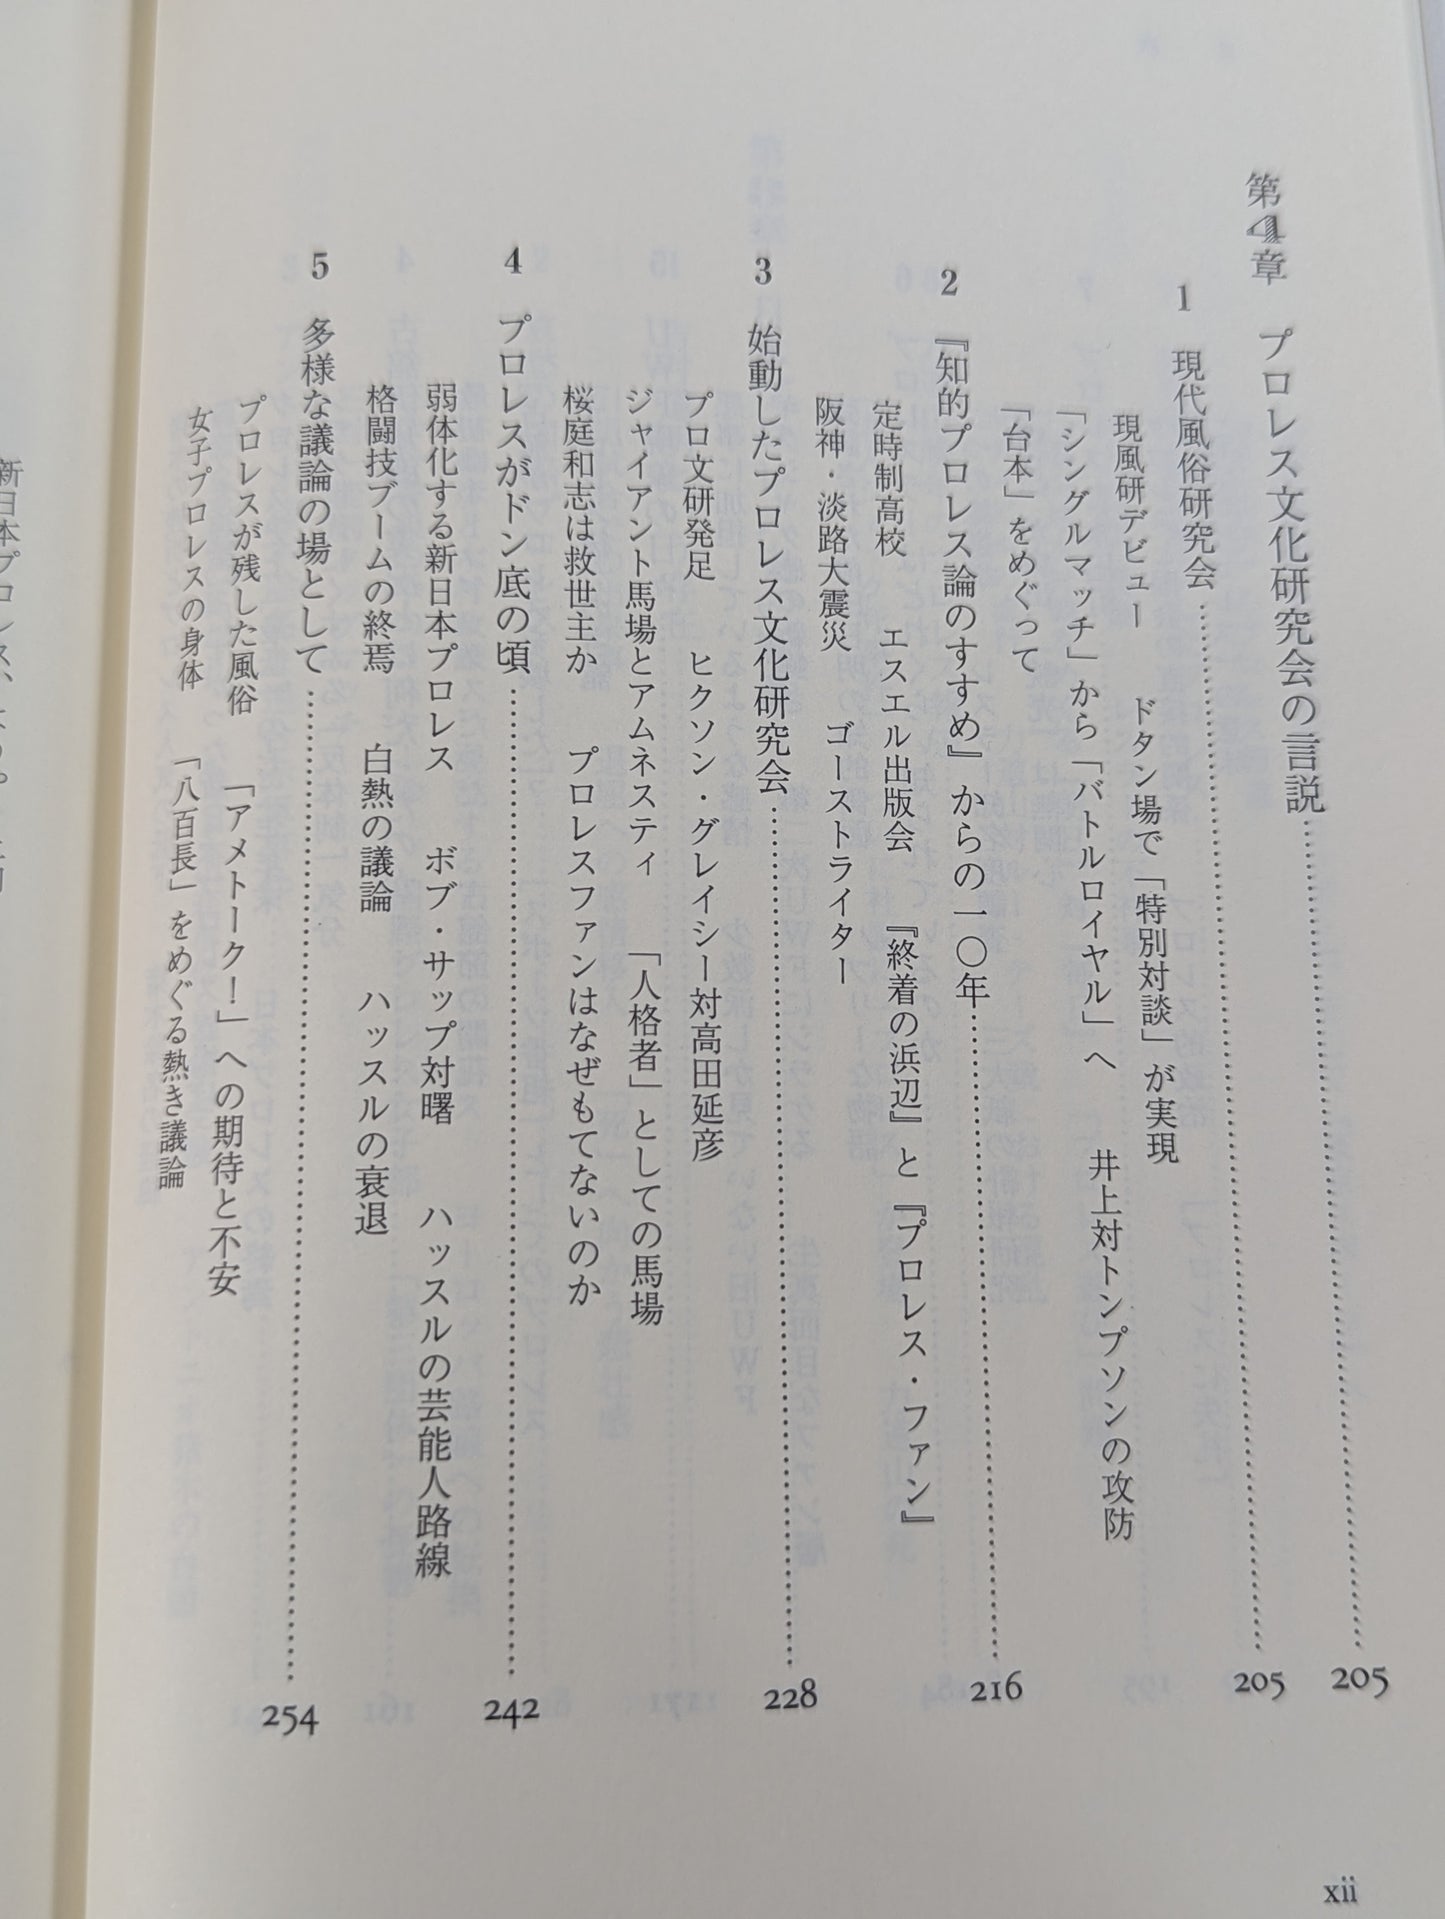 第4章　プロレス文化研究会の言説……205
1　現代風俗研究会……205
現風研デビュー　ドタン場で「特別対談」が実現
「シングルマッチ」から「バトルロイヤル」へ　井上対トンプソンの攻防
「台本」をめぐって
2　『知的プロレス論のすすめ』からの一〇年……216
定時制高校　エスエル出版会　『終着の浜辺』と『プロレス・ファン』
阪神・淡路大震災　ゴーストライター
3　始動したプロレス文化研究会……228
プロ文研発足　ヒクソン・グレイシー対高田延彦
ジャイアント馬場とアムネスティ　「人格者」としての馬場
桜庭和志は救世主か　プロレスファンはなぜもてないのか
4　プロレスがドン底の頃……242
弱体化する新日本プロレス　ボブ・サップ対曙　ハッスルの芸能人路線
格闘技ブームの終焉　白熱の議論　ハッスルの衰退
5　多様な議論の場として……254
プロレスが残した風俗　「アメトーク！」への期待と不安
女子プロレスの身体　「八百長」をめぐる熱き議論
xii